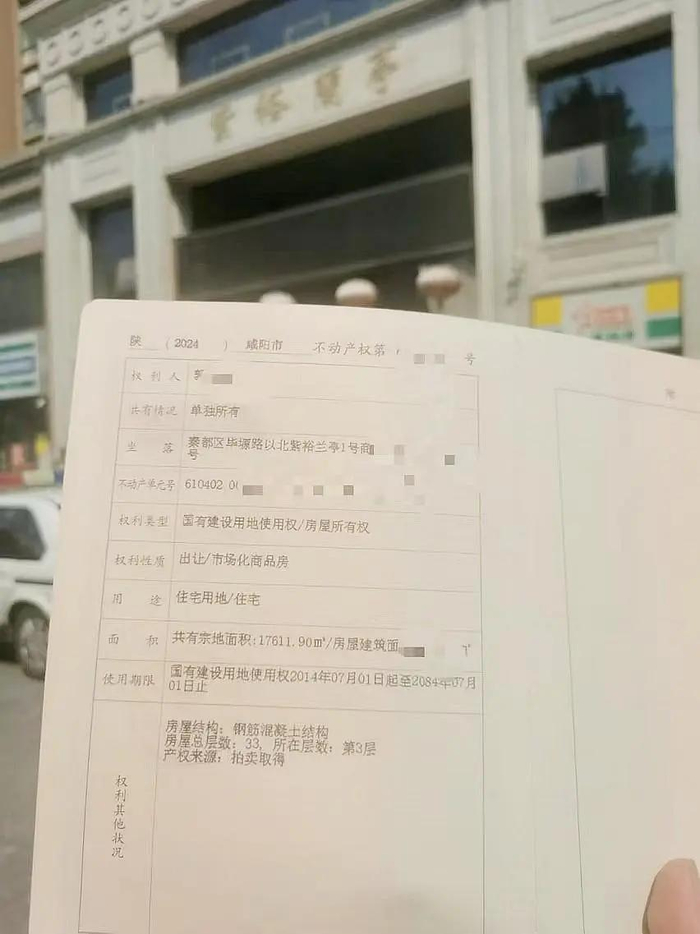 紫裕蘭亭
陕 （2024 ） 咸阳市 不动产权第 号
权利人
共有情况 单独所有
坐落 秦都区毕塬路以北紫裕兰亭1号商
号
不动产单元号 610402 0
权利类型 国有建设用地使用权/房屋所有权
权利性质 出让/市场化商品房
用途 住宅用地/住宅
面积 共有宗地面积:17611.90㎡/房屋建筑面
使用期限 国有建设用地使用权2014年07月01日起至2084年07月
01日止
权利其他状况
房屋结构：钢筋混凝土结构
房屋总层数：33，所在层数：第3层
产权来源：拍卖取得
附